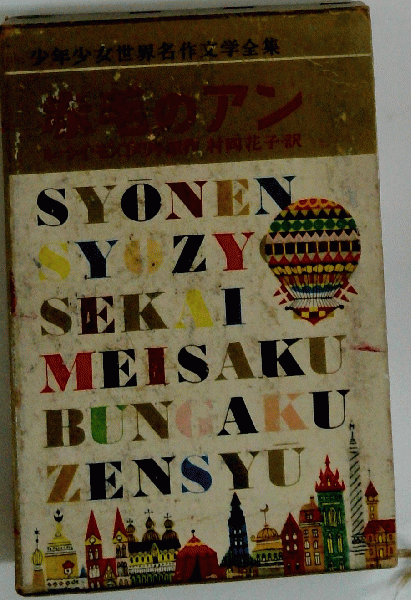 少年少女世界名作文学全集
赤毛のアン
村岡花子・訳
SYŌNEN
SYŌZYO
SEKAI
MEISAKU
BUNGAKU
ZENSYŪ